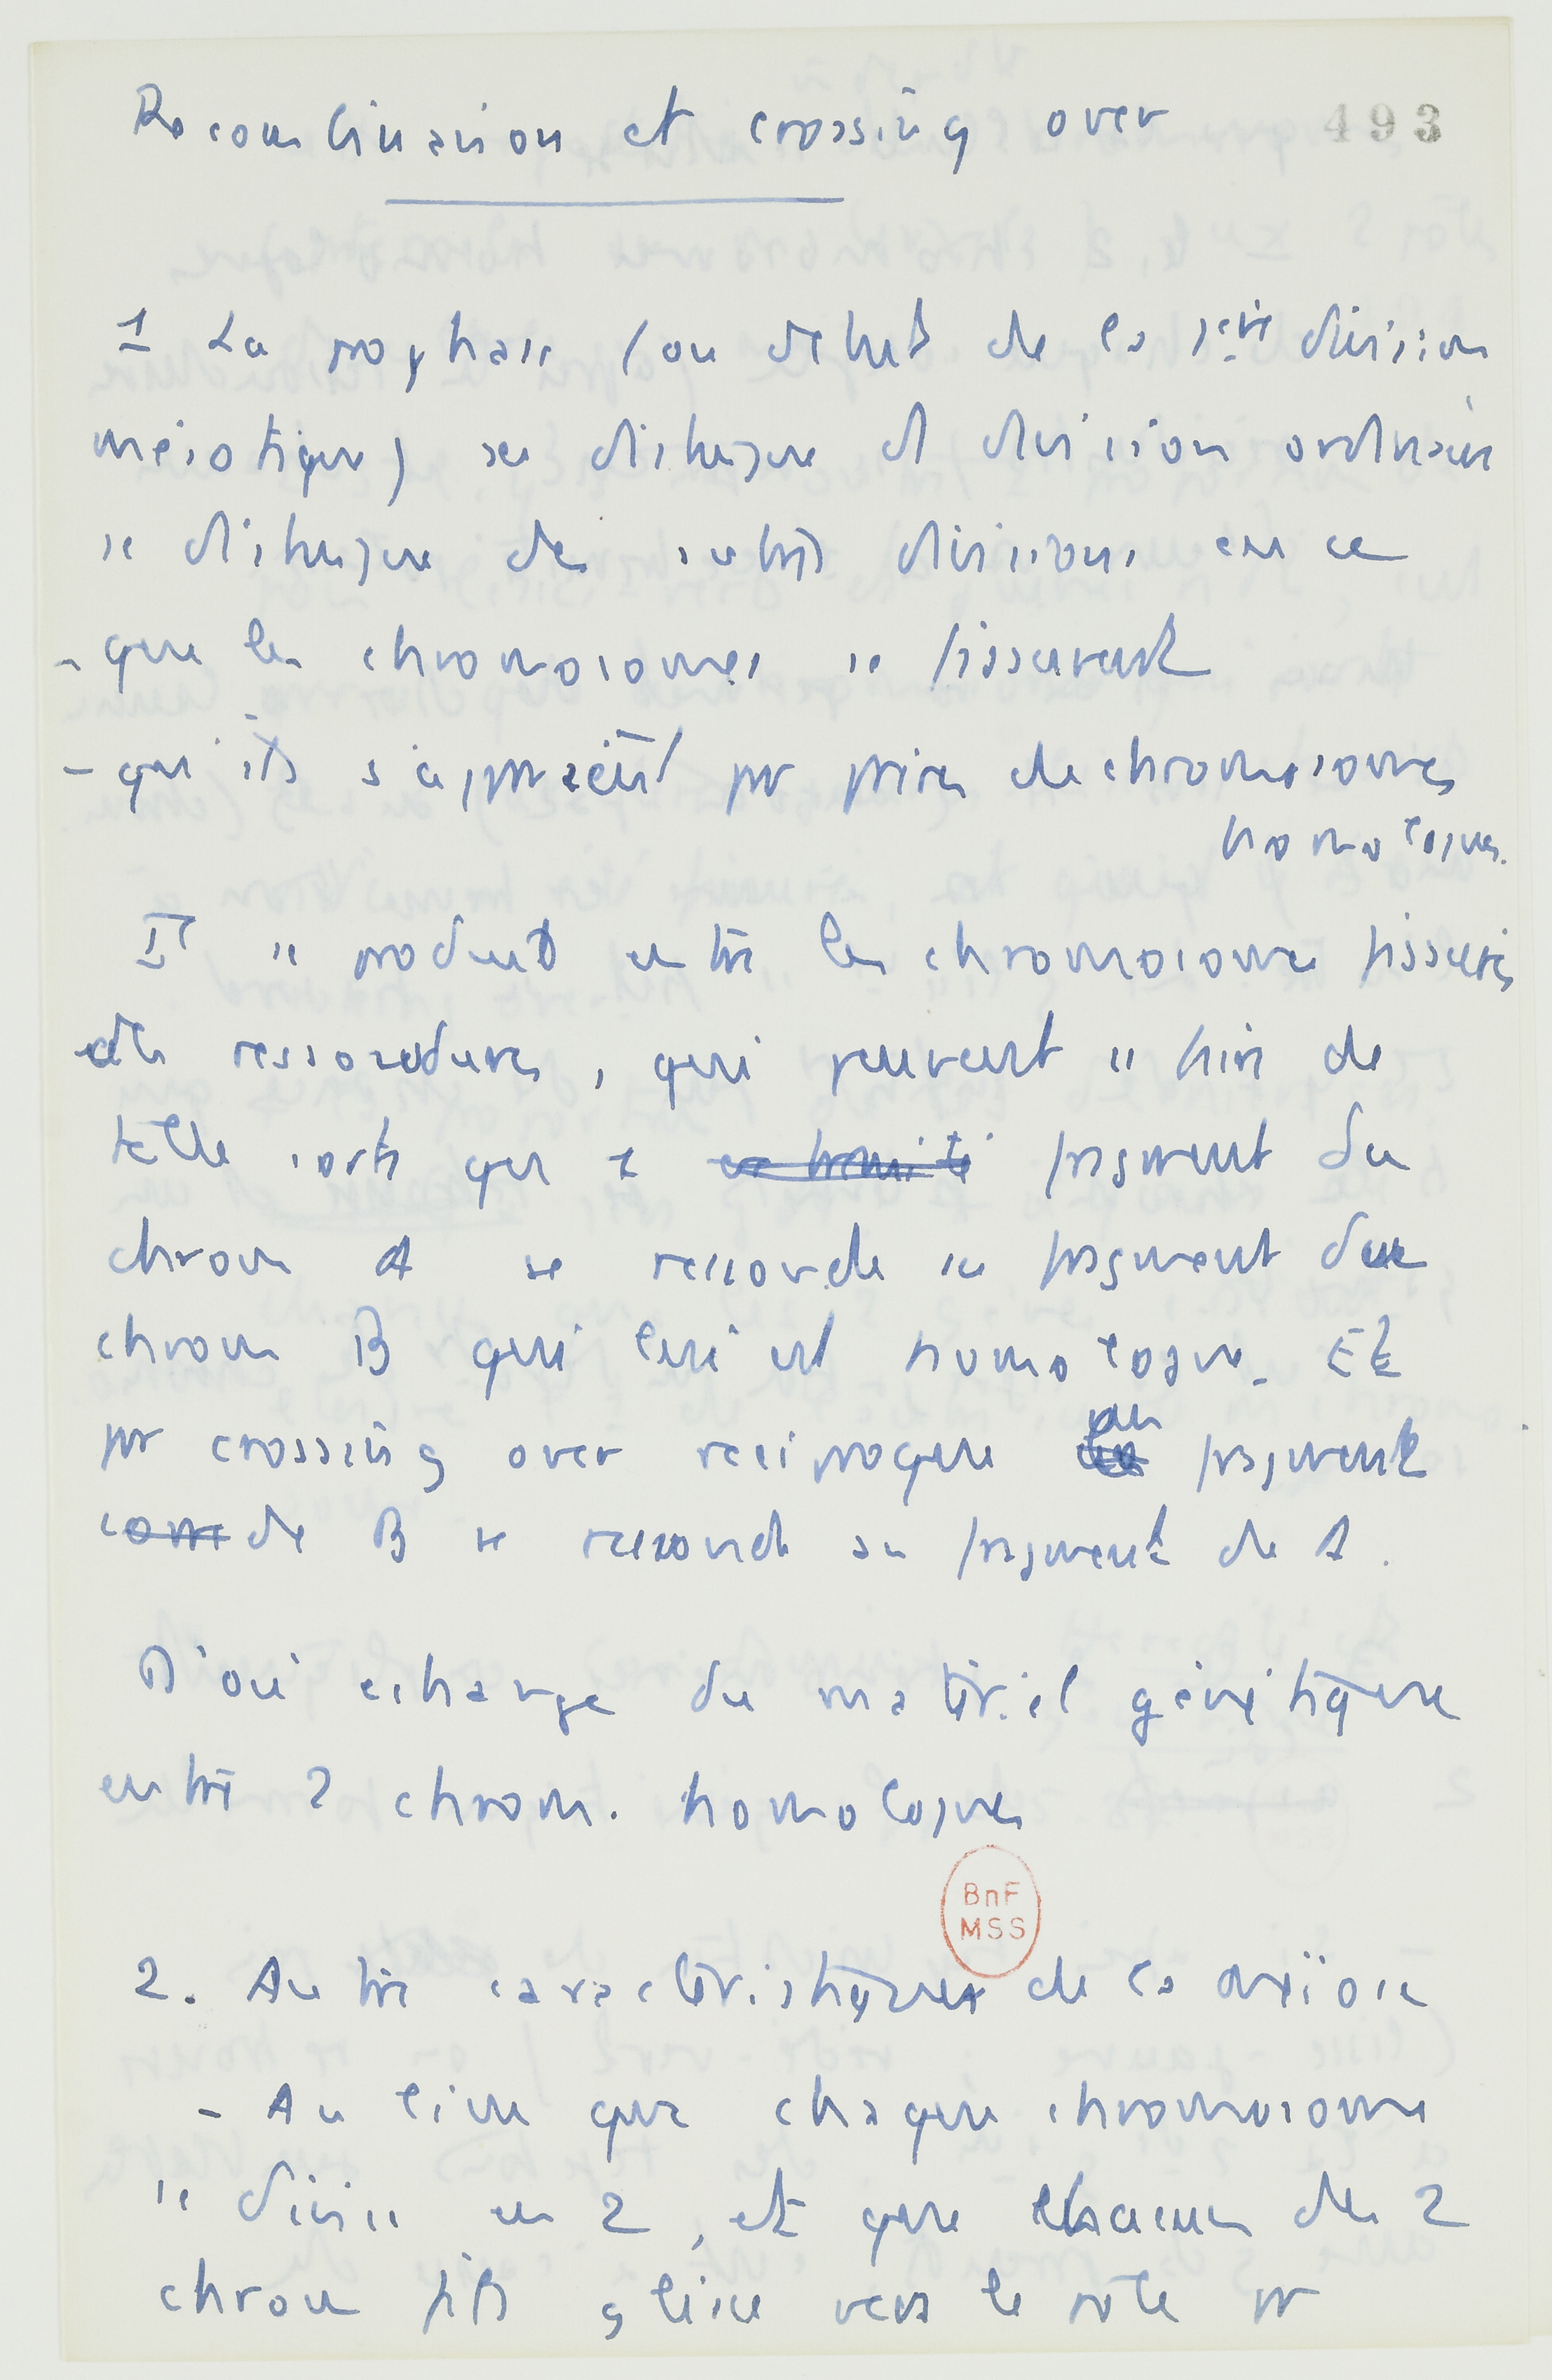 Recombinaison et crossing over
493
1 La prophase (ou début de la 1ère division
méiotique) se distingue de division ordinaire
se distingue des autres divisions en ce
- que les chromosomes se fissurent
- qu'ils s'apparient par paires de chromosomes
homologues.
II se produit entre les chromosomes fissurés
des ressoudures, qui peuvent se faire de
telle sorte que 1 extrémité fragment du
chrom A se ressoude au fragment du
chrom B qui lui est homologue. Et
par crossing over réciproque un fragment
de B se ressoude au fragment de A.
D'où échange du matériel génétique
entre 2 chrom. homologues
BnF
MSS
2. Autre caractéristique de la méiose
- Au lieu que chaque chromosome
se divise en 2, et que chacun des 2
chrom fils glisse vers le pôle pr